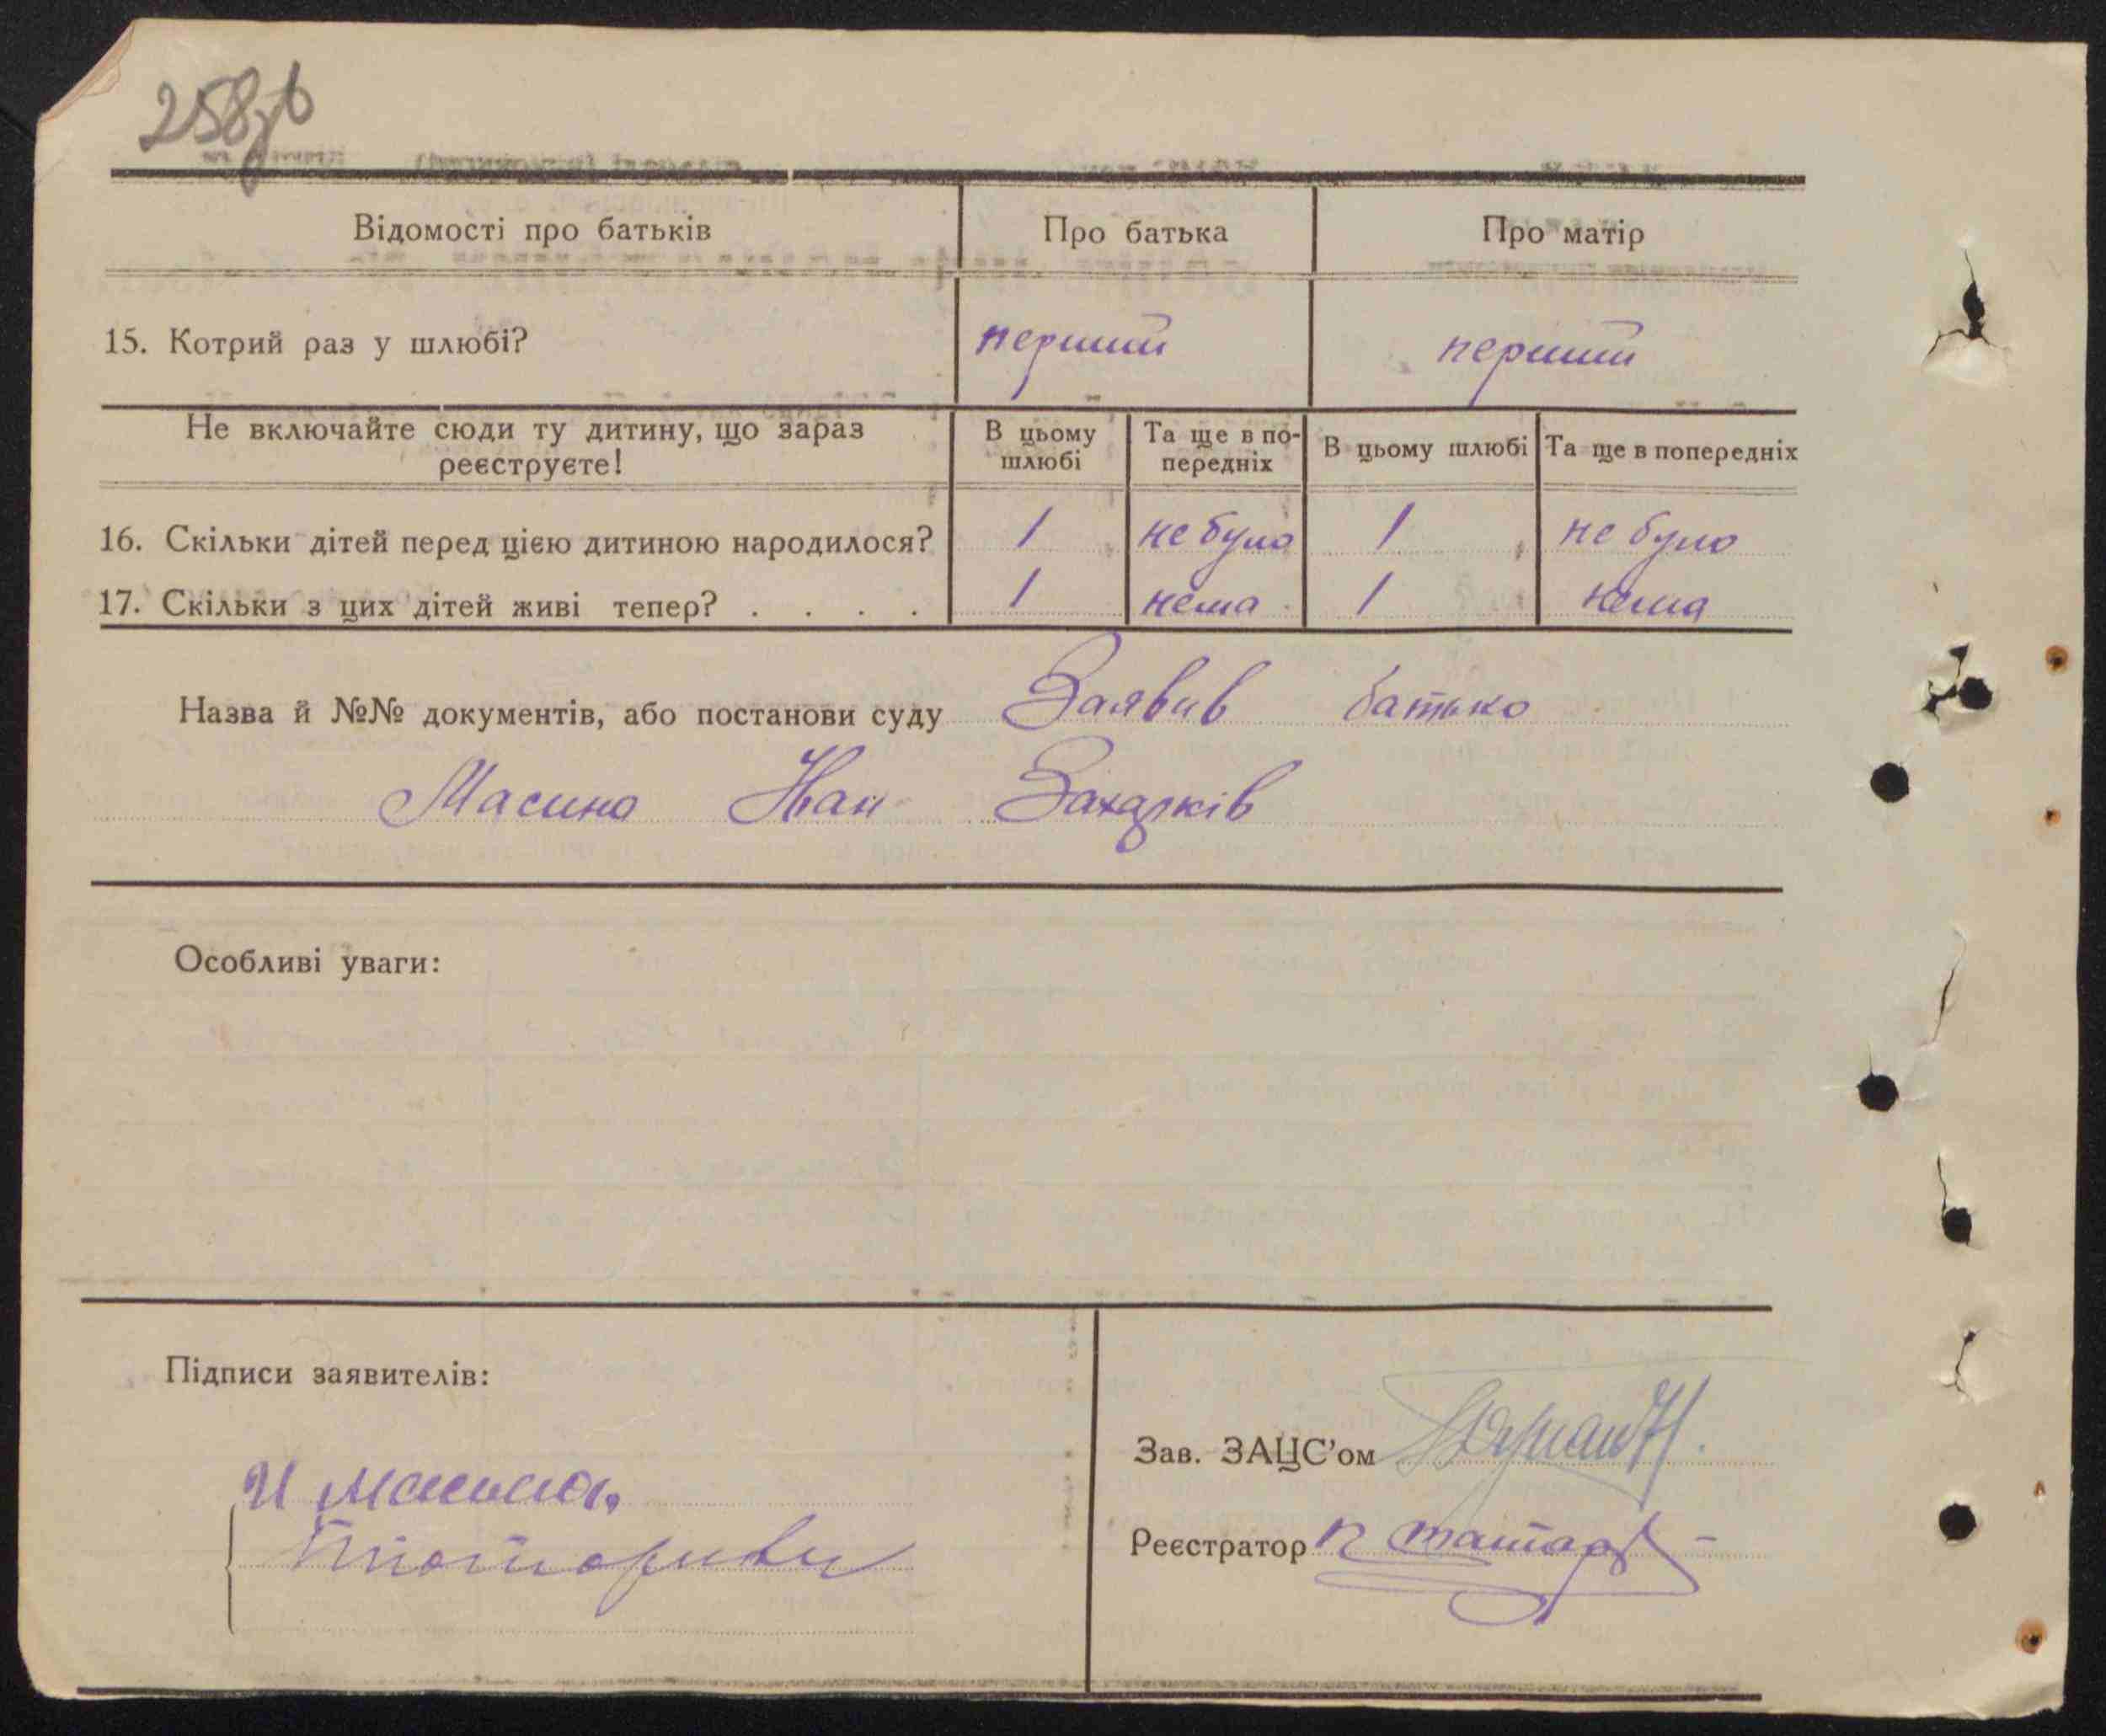 258зв
Відомості про батьків Про батька Про матір
15. Котрий раз у шлюбі? перший перший
Не включайте сюди ту дитину, що зараз реєструєте!
В цьому шлюбі Та ще в по-передніх В цьому шлюбі Та ще в попередніх
16. Скільки дітей перед цією дитиною народилося? 1 не було 1 не було
17. Скільки з цих дітей живі тепер? . . . . 1 нема 1 нема
Назва й №№ документів, або постанови суду Заявив батько
Масина Іван Захарків
Особливі уваги:
Підписи заявителів:
И Масина
Зав. ЗАЦС'ом
Реєстратор